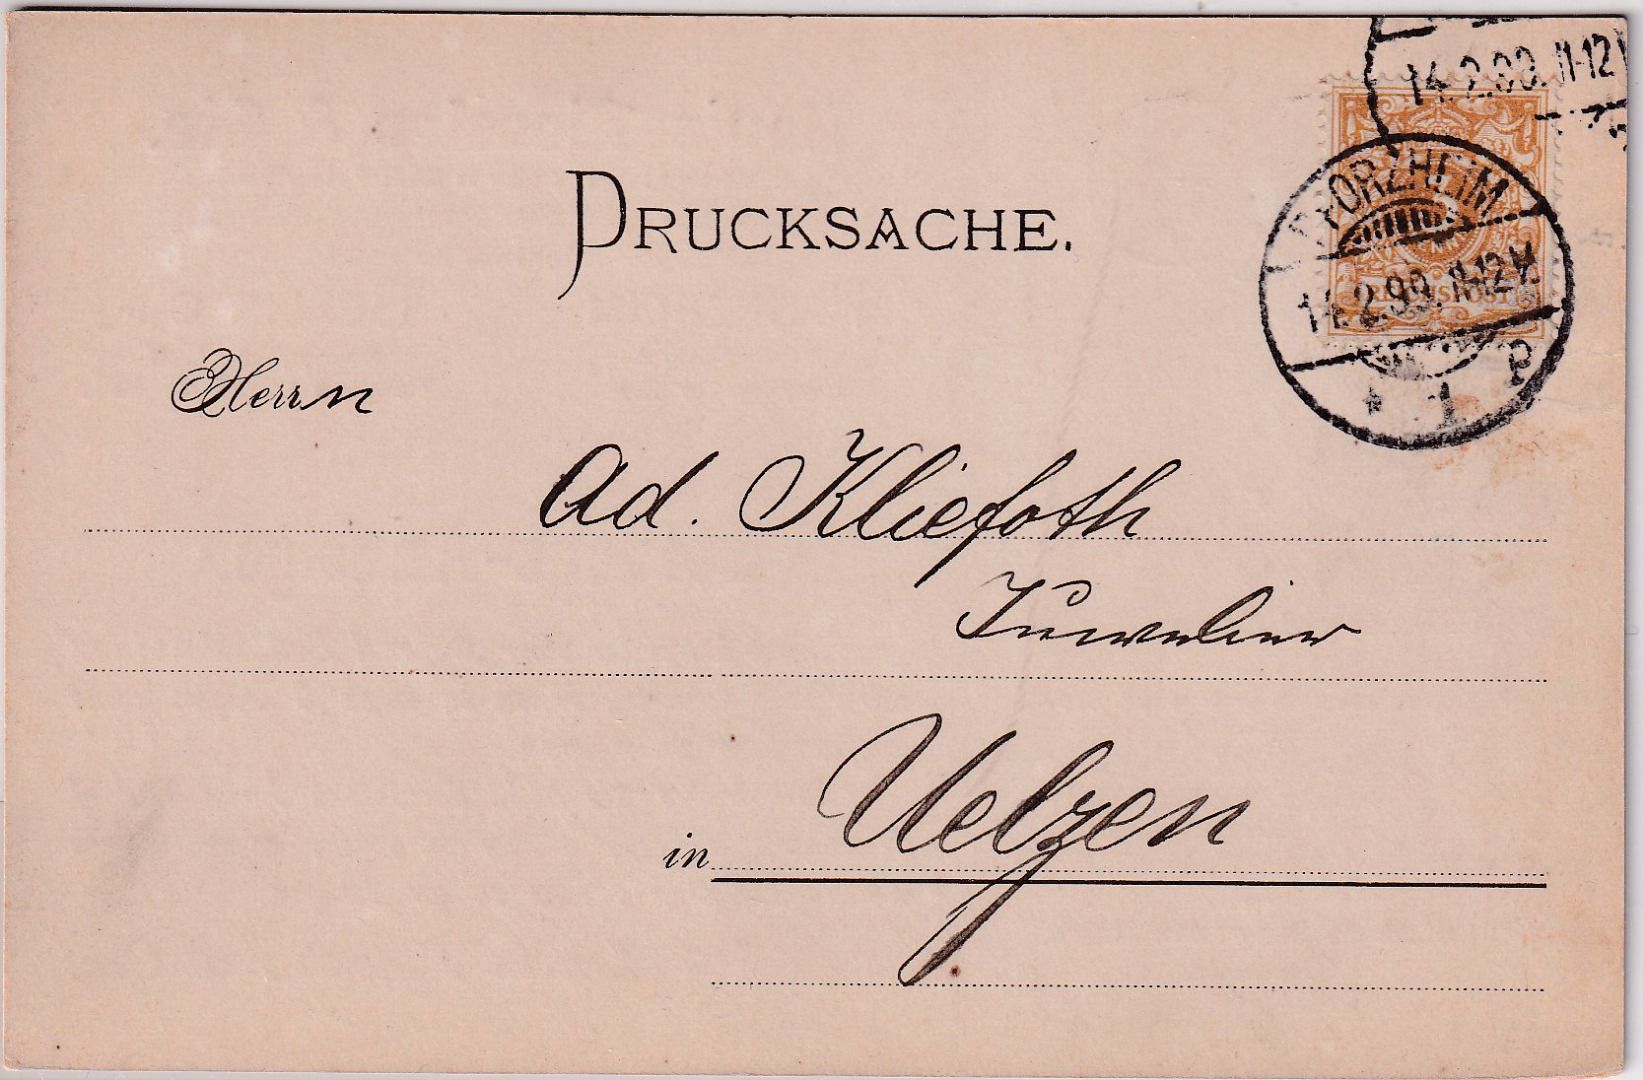 14.2.99. 11-12V
DRUCKSACHE.
PFORZHEIM
14.2.99. 11-12V.
REICHSPOST
* 1 P
Herrn
Ad. Kliefoth
Juwelier
in Uelzen